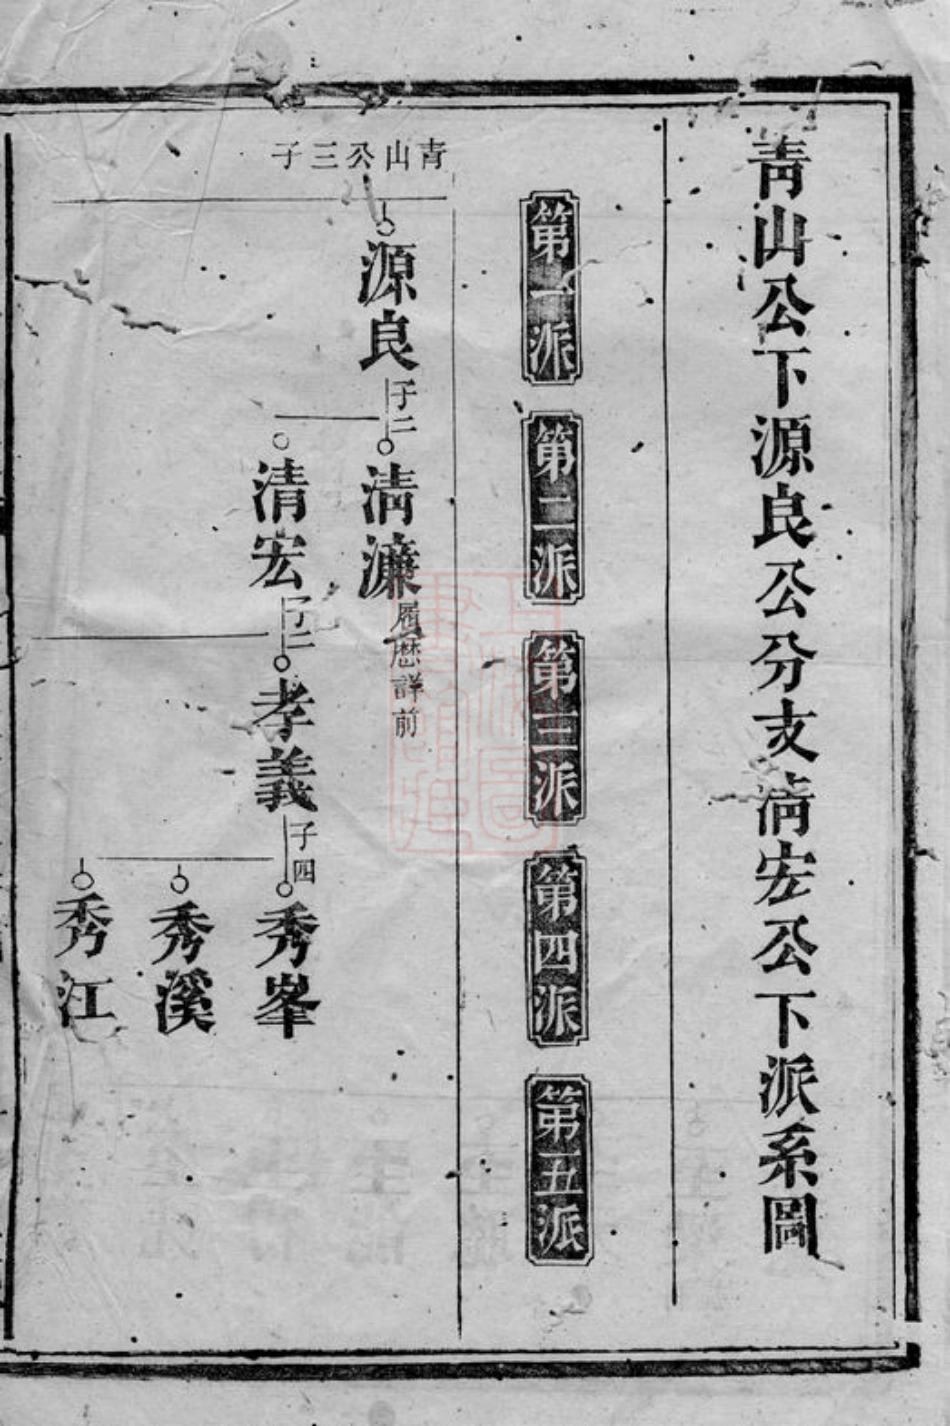 青山公下源良公分支清宏公下派系圖
第一派
第二派
第三派
第四派
第五派
青山公三子
源良
子二
清濂
履歷詳前
清宏
子二
孝義
子四
秀峯
秀溪
秀江